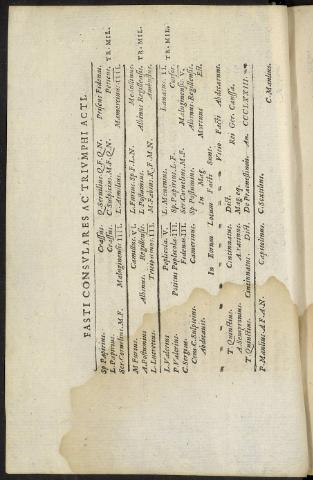 FASTI CONSVLARES AC TRIVMPHI ACTI.
Sp. Papirius. Crassus. Q. Servilius. Q. F. Q. N. Priscus Fidenas.
L. Papirius. Crassus. C. Sulpicius. M. F. Q. N. Peticus. TR. MIL.
Ser. Cornelius. M. F. Maluginensis IIII. L. Aemilius. Mamercinus. IIII.
M Furius. Camillus. VI. L. Furius. Sp. F. L. N. Medullinus.
A. Postumius Albinus. Regillensis. L. Postumius. Albinus Regillensis. TR. MIL.
L. Lucretius. Tricipitinus. III. M. Fabius. K. F. M. N. Ambustus.
L. Valerius Poplicola. V. L. Menenius. Lanatus. II. TR. MIL.
P. Valerius. Potitus Poplicola. III. Sp. Papirius. L. F. Crassus.
C. Sergius. Fidenas. III. Ser. Cornelius. M. F. Maluginensis. V.
Camerinus. Sp. Postumius. Albinus Regillensis.
Abdicauit. In Mag. Mortuus Est.
In Eorum Locum Facti Sunt.
Vitio Facti Abdicarunt.
T. Quinctius. Cincinnatus. Dict. Rei Ger. Caussa.
A. Sempronius. Atratinus. Mag. eq.
T. Quinctius. Cincinnatus. Dict. De Praenestineis. An. CCCLXXIII.
P. Manlius. A. F. A. N. Capitolinus. C. Manlius.